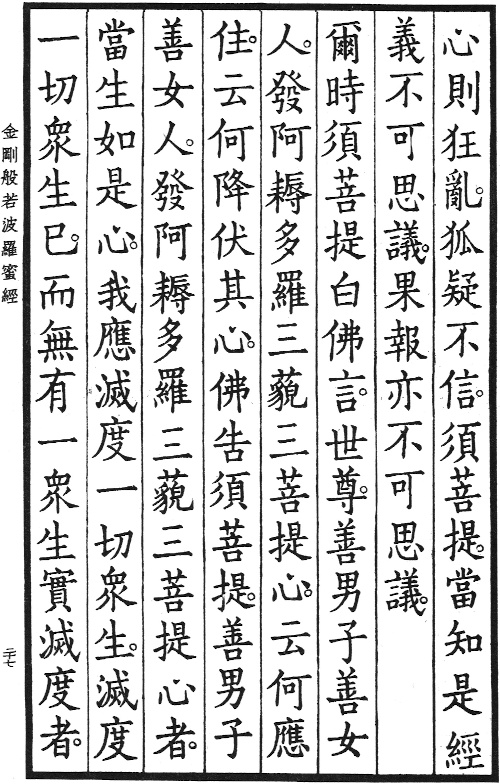 心則狂亂。狐疑不信。須菩提。當知是經
義不可思議。果報亦不可思議。
爾時須菩提白佛言。世尊。善男子善女
人。發阿耨多羅三藐三菩提心。云何應
住。云何降伏其心。佛告須菩提。善男子
善女人。發阿耨多羅三藐三菩提心者。
當生如是心。我應滅度一切眾生。滅度
一切眾生已。而無有一眾生實滅度者。
金剛般若波羅蜜經
二十七